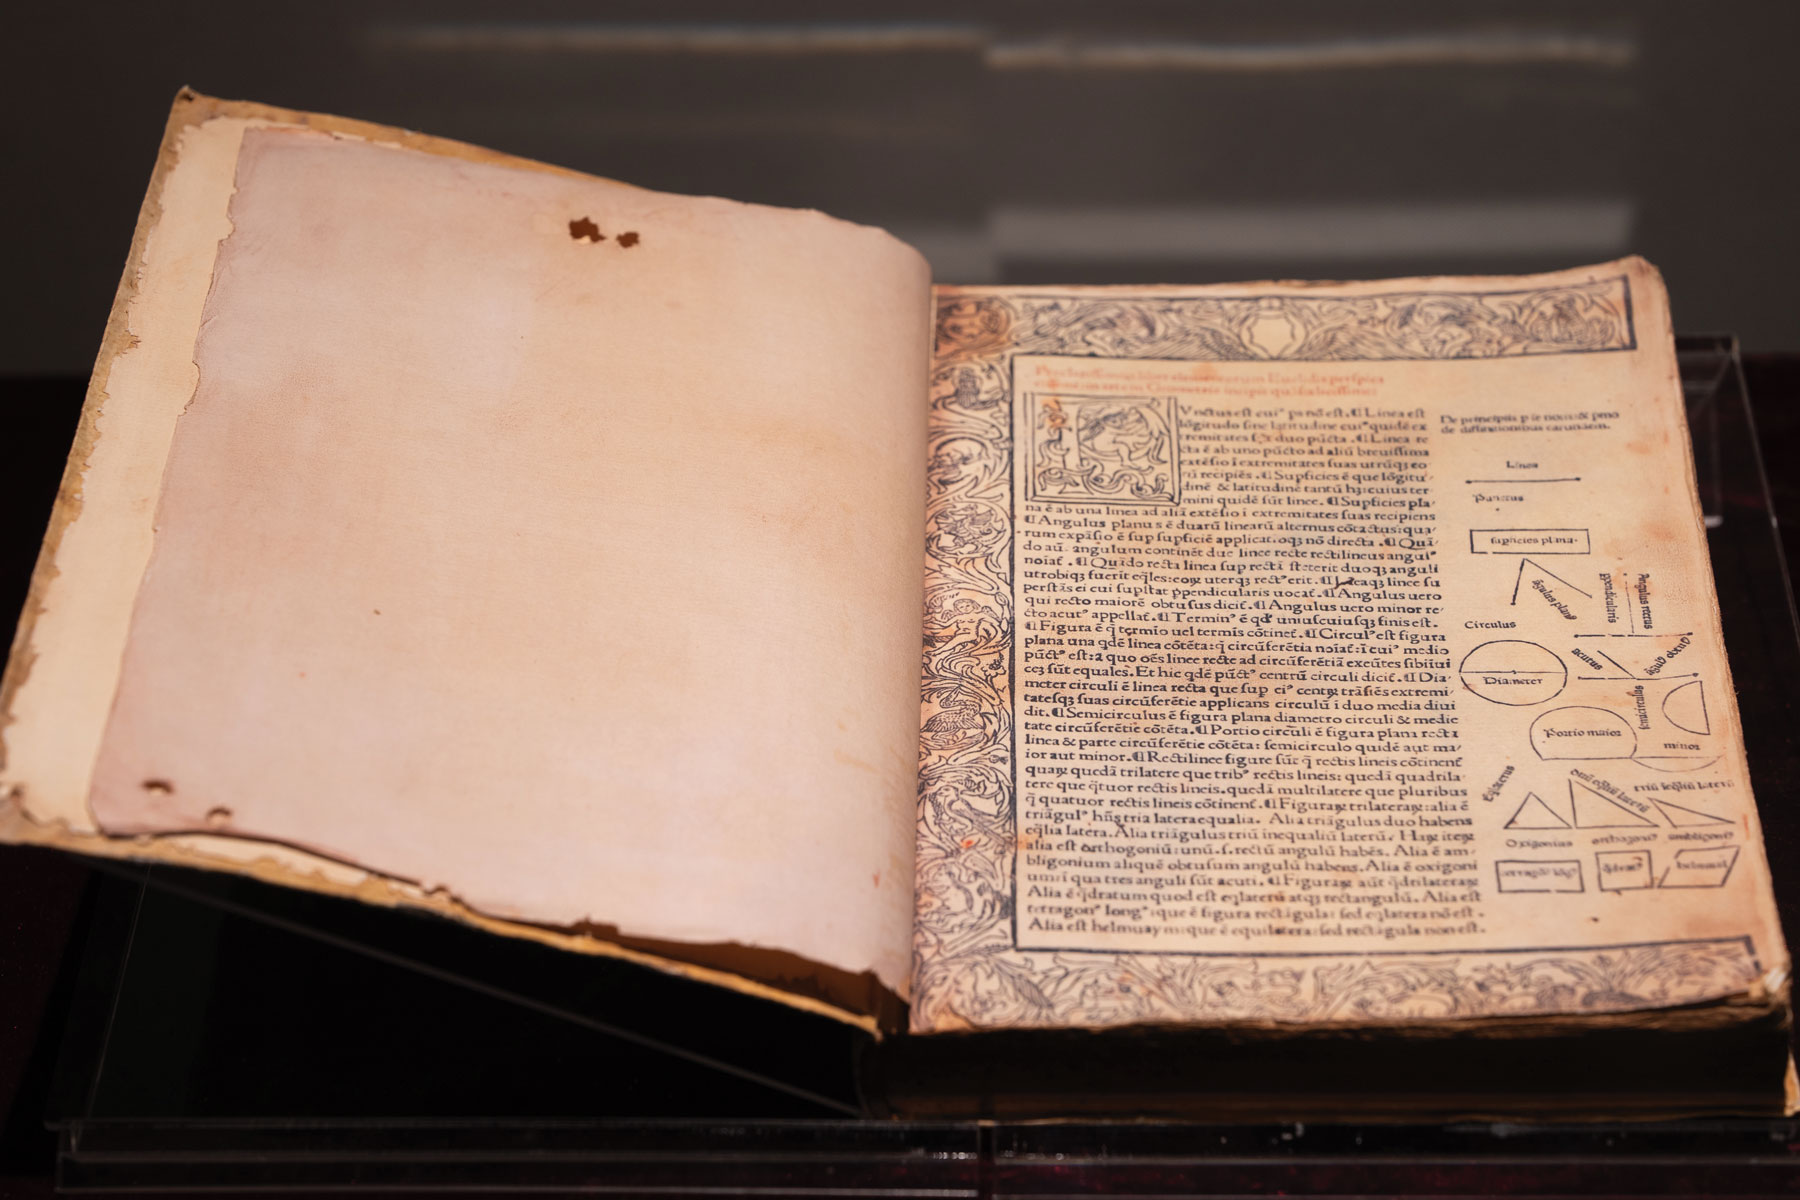 Preclarissimus liber elementorum Euclidis perspi⸗
in artem Geometrie incipit quāfoelicissime:
Vnctus est cui⁹ ps nō est. ¶ Linea est
lōgitudo sine latitudine cui⁹ quidē ex
tremitates sūt duo pūcta. ¶ Linea re
cta ē ab uno pūcto ad aliū breuissima
extēsio ī extremitates suas utrūqꝫ eo⸗
rū recipiēs. ¶ Supficies ē que lōgitu⸗
dinē & latitudinē tantū hꝫ: cuius ter⸗
mini quidē sūt linee. ¶ Supficies pla⸗
na ē ab una linea ad aliā extēsio i extremitates suas recipiens
¶ Angulus planus ē duarū linearū alternus cōtactus: qua⸗
rum expāsio ē sup supficiē applicat. oqꝫ nō directa. ¶ Quā⸗
do aū. angulum continēt due linee recte rectilineus angul⁹
noiat̄. ¶ Quādo recta linea sup rectā steterit duoqꝫ anguli
utrobiqꝫ fuerit eq̄les: eoꝝ uterqꝫ rect⁹ erit. ¶ Lineaqꝫ linee su
perstās ei cui supstat ppendicularis uocat̄. ¶ Angulus uero
qui recto maiorē obtusus dicit̄. ¶ Angulus uero minor re⸗
cto acut⁹ appellat̄. ¶ Termin⁹ ē qd́ uniuscuiusqꝫ finis est.
¶ Figura ē q̄ termio uel termis cōtinet̄. ¶ Circul⁹ est figura
plana una qdē linea cōtēta: q̄ circūferētia noiat̄: ī cui⁹ medio
pūct⁹ est: a quo oēs linee recte ad circūferētiā exeūtes sibiīui
ceꝫ sūt equales. Et hic qdē pūct⁹ centrū circuli dicit̄. ¶ Dia⸗
meter circuli ē linea recta que sup ei⁹ centꝝ trāsiēs extremi⸗
tatesqꝫ suas circūferētie applicans circulū i duo media diui
dit. ¶ Semicirculus ē figura plana diametro circuli & medie
tate circūferētie cōtēta. ¶ Portio circuli ē figura plana recta
linea & parte circūferētie cōtēta: semicirculo quidē aut ma⸗
ior aut minor. ¶ Rectilinee figure sūt q̄ rectis lineis cōtinent̄
quaꝝ quedā trilatere que trib⁹ rectis lineis: quedā quadrila⸗
tere que q̄tuor rectis lineis. quedā multilatere que pluribus
q̄ quatuor rectis lineis cōtinent̄. ¶ Figuraꝝ trilateraꝝ: alia ē
triāgul⁹ hn̄s tria latera equalia. Alia triāgulus duo habens
eq̄lia latera. Alia triāgulus triū inequaliū laterū. Haꝝ iteꝝ
alia est orthogoniū: unū. s. rectū angulū habēs. Alia ē am⸗
bligonium aliquē obtusum angulū habens. Alia ē oxigoni
um: i qua tres anguli sūt acuti. ¶ Figuraꝝ aūt q̄drilateraꝝ
Alia ē q̄dratum quod est eq̄laterū atqꝫ rectangulū. Alia est
tetragon⁹ long⁹: que ē figura rectāgula: sed eq̄latera nō est.
Alia est helmuaym: que ē equilatera: sed rectāgula non est.
De principiis p se notis: & pmo
de diffinitionibus earundem.
Linea
Punctus
supficies plana.
āgulus planꝰ
ppendicularis
Angulus rectus
Circulus
Diameter
acutus
āgulꝰ obtusꝰ
Portio maior
semicirculus
minor
Eq̄laterus
duū eq̄liū laterū
triū ineq̄liū laterū
Oxigonius
orthogonꝰ
ambligonꝰ
tetragonꝰ lōgꝰ
q̄dratꝰ
helmuai